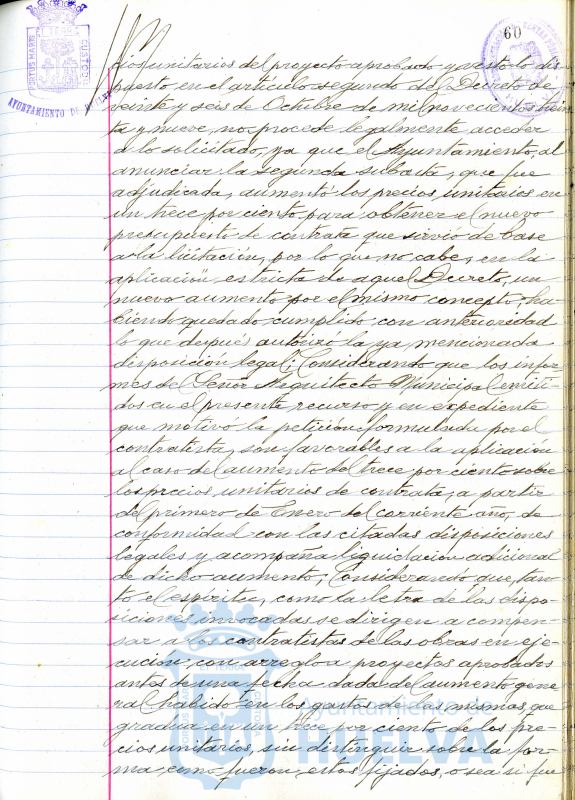 60
PORTUS MARIS
CUSTODIA
AYUNTAMIENTO DE HUELVA
cios unitarios del proyecto aprobado y visto lo dis-
puesto en el artículo segundo del Decreto de
veinte y seis de Octubre de mil novecientos trein
ta y nueve, no procede legalmente acceder
a lo solicitado, ya que el Ayuntamiento, al
anunciar la segunda subasta, que fue
adjudicada, aumentó los precios unitarios en
un trece por ciento para obtener el nuevo
presupuesto de contrata que sirvió de base
a la licitación, por lo que no cabe, en la
aplicación estricta de aquel Decreto, un
nuevo aumento por el mismo concepto, ha
biendo quedado cumplido con anterioridad
lo que después autorizó la ya mencionada
disposición legal; Considerando que los infor
mes del Señor Arquitecto Municipal emiti
dos en el presente recurso y en expediente
que motivó la petición formulada por el
contratista, son favorables a la aplicación
al caso del aumento del trece por ciento sobre
los precios unitarios de contrata, a partir
del primero de Enero del corriente año, de
conformidad con las citadas disposiciones
legales y acompaña liquidación adicional
de dicho aumento; Considerando que, tan
to el espíritu, como la letra de las dispo-
siciones invocadas se dirigen a compen-
sar a los contratistas de las obras en eje-
cución, con arreglo a proyectos aprobados
antes de una fecha dada del aumento gene
ral habido en los gastos de las mismas, que
gradua en un trece por ciento de los pre-
cios unitarios, sin distinguir sobre la for-
ma como fueron estos fijados, o sea si fue
Ayuntamiento de
HUELVA